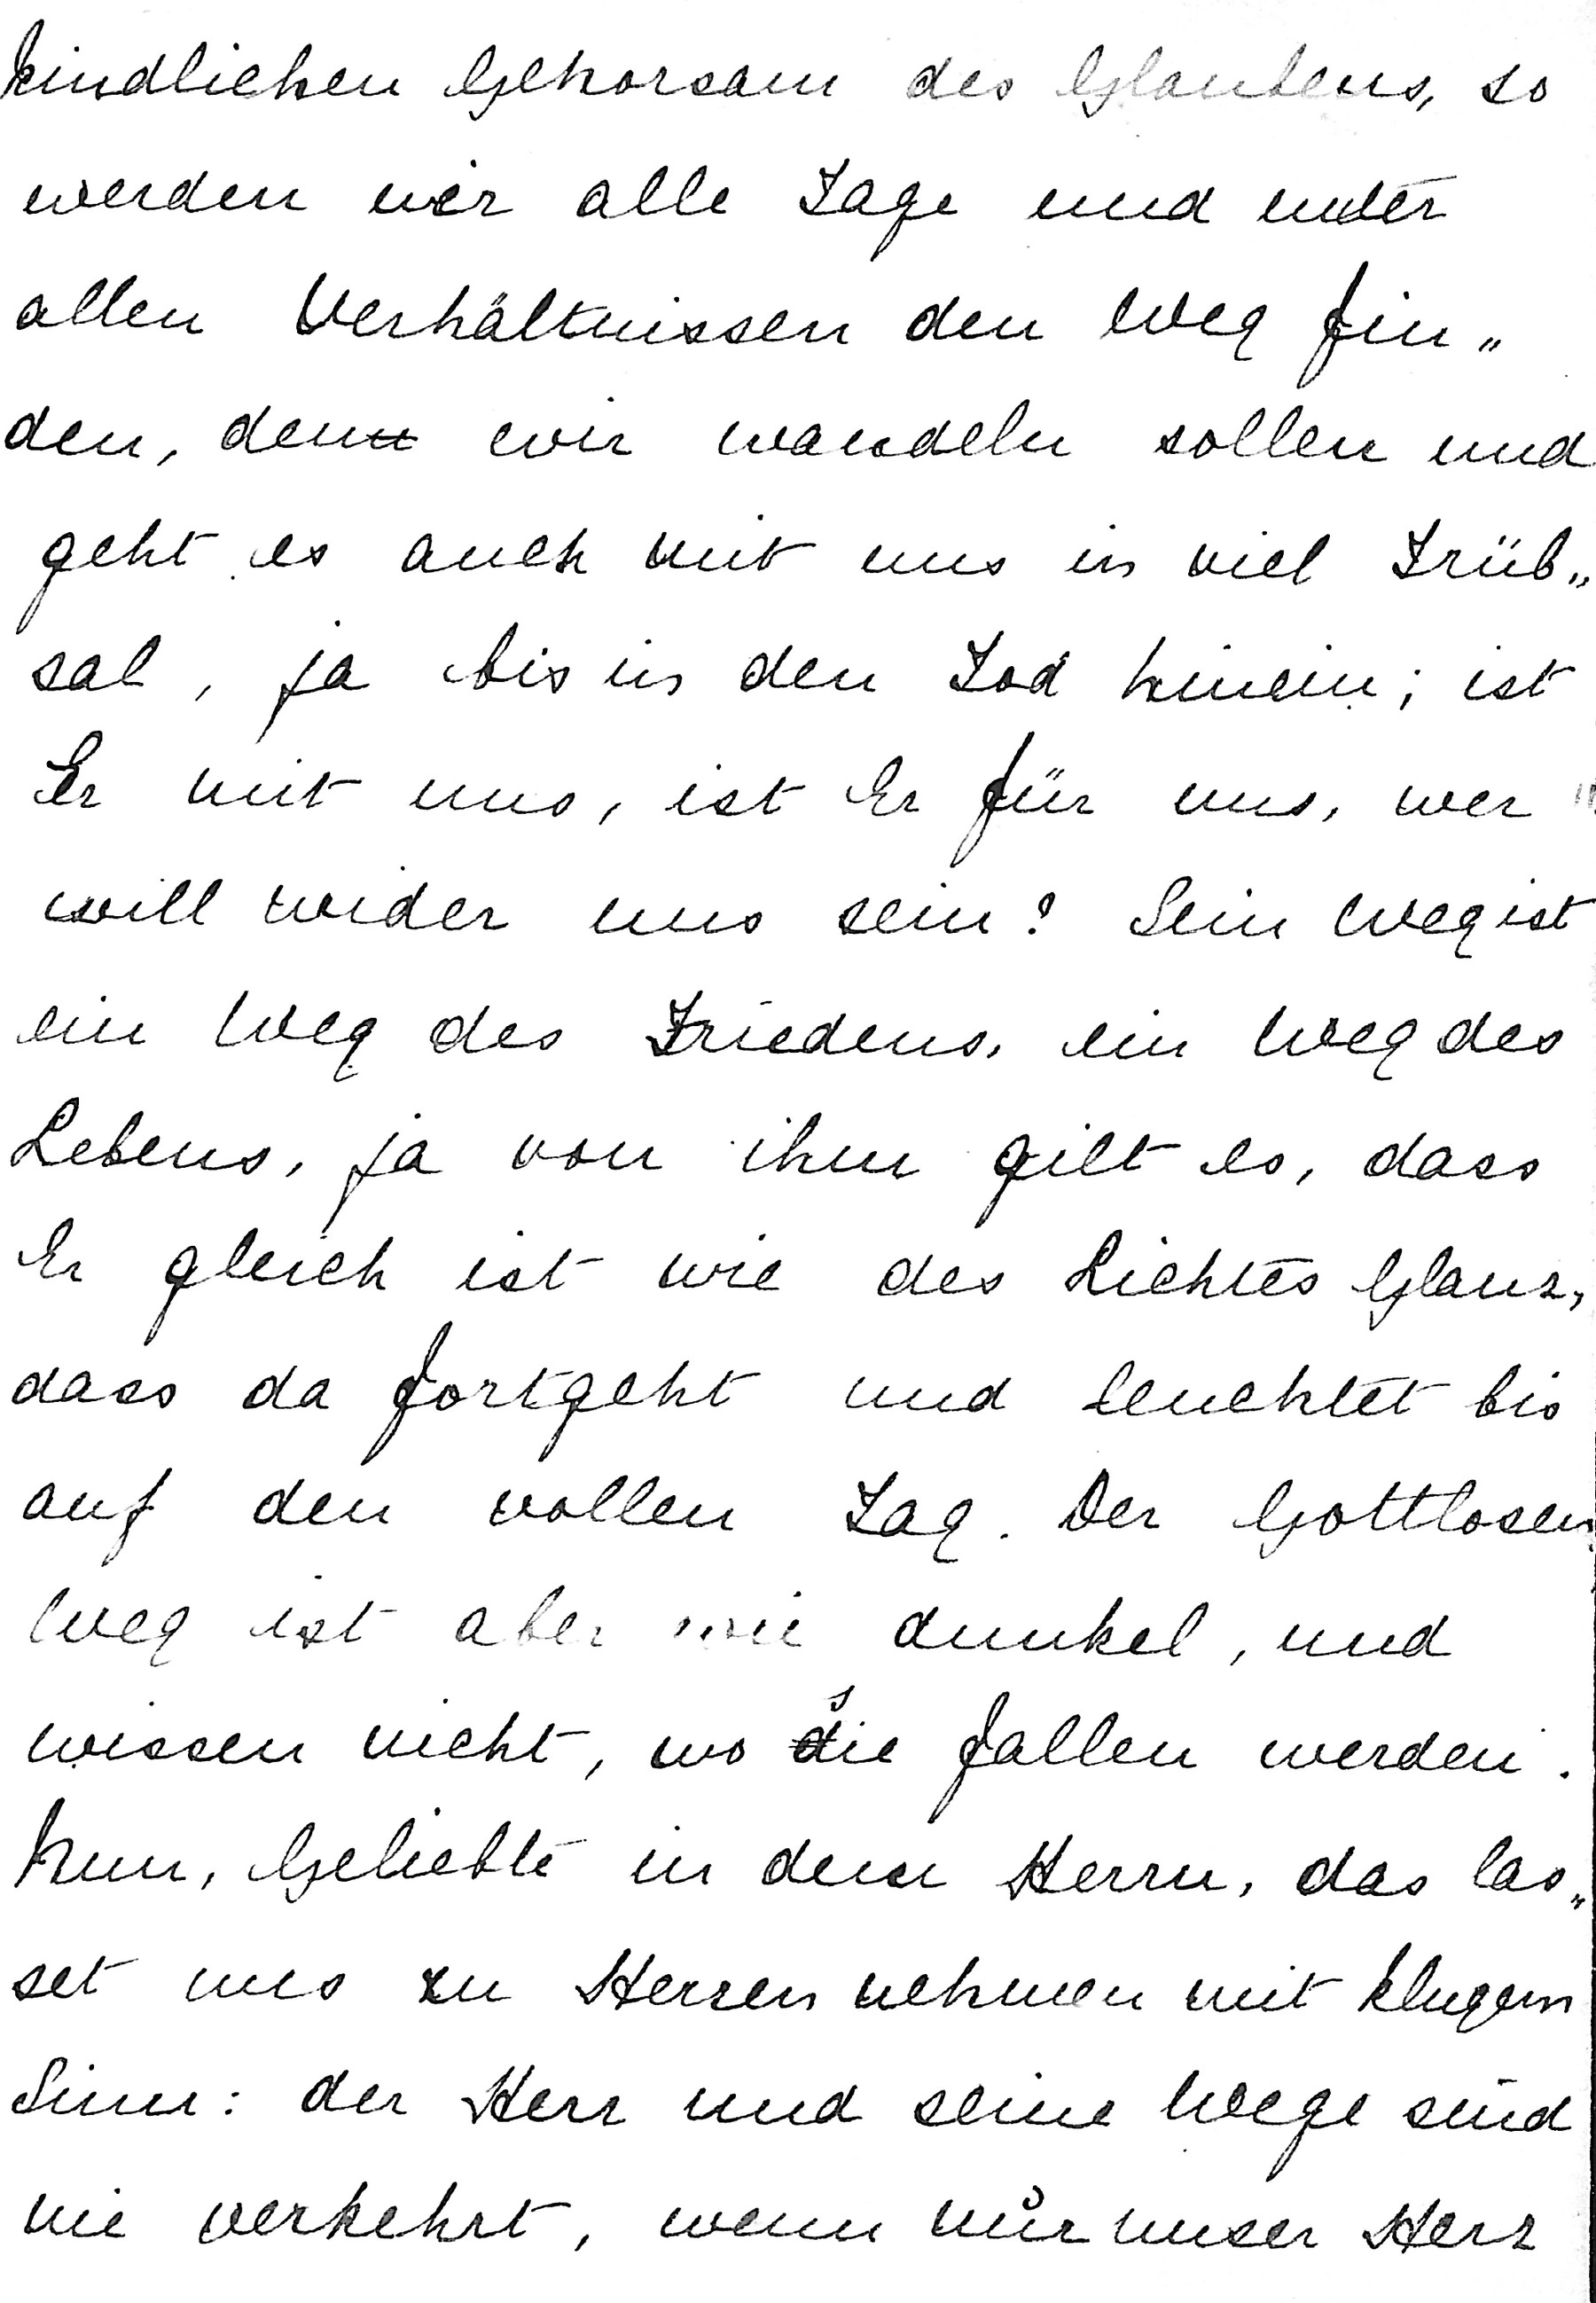 kindlichen Gehorsam des Glaubens, so
werden wir alle Tage und unter
allen Verhältnissen den Weg fin„
den, den wir wandeln sollen und
geht es auch mit uns in viel Trüb„
sal, ja bis in den Tod hinein; ist
Er mit uns, ist Er für uns, wer
will wider uns sein? Sein Weg ist
ein Weg des Friedens, ein Weg des
Lebens, ja von ihm gilt es, dass
Er gleich ist wie des Lichtes Glanz,
dass da fortgeht und leuchtet bis
auf den vollen Tag. Der Gottlosen
Weg ist aber wie dunkel, und
wissen nicht, wo sie fallen werden.
Nun, Geliebte in dem Herrn, das las„
set uns zu Herzen nehmen mit klugem
Sinn: der Herr und seine Wege sind
nie verkehrt, wenn nur unser Herz